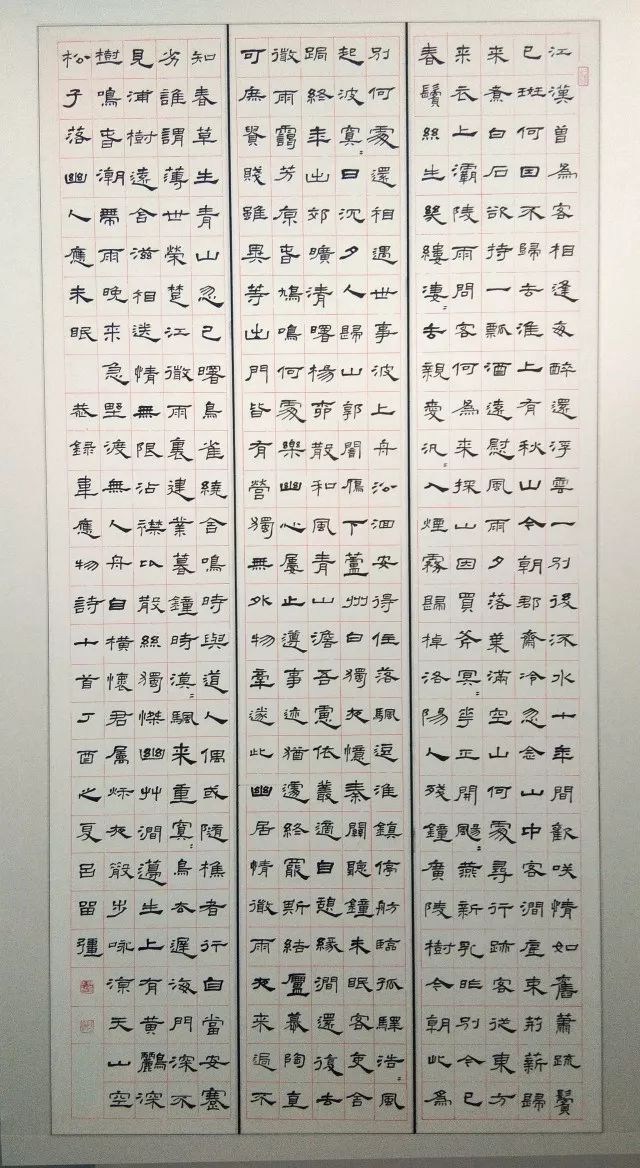 江漢曽為客相逢每醉還浮雲一別後流水十年間歡咲情如舊蕭疏鬢
已斑何因不歸去淮上有秋山今朝郡齋冷忽念山中客澗底束荊薪歸
來煮白石欲持一瓢酒遠慰風雨夕落葉滿空山何處尋行跡客從東方
来衣上灞陵雨問客何為来採山因買斧冥=華正開颺=燕新乳昨別今已
春鬢絲生幾縷淒=去親愛汎=入煙霧歸棹洛陽人殘鐘廣陵樹今朝此為
別何處還相遇世事波上舟沿洄安得住落颿逗淮鎮停舫臨孤驛浩=風
起波冥=日沉夕人歸山郭闇鴈下蘆州白獨夜憶秦關聽鐘未眠客吏舍
跼終年出郊曠清曙楊柳散和風青山澹吾慮依叢適自憩緣澗還復去
微雨靄芳原春鳩鳴何處樂幽心屢止遵事迹猶遽終罷斯結廬慕陶直
可庶貴賤雖異等出門皆有營獨無外物牽遂此幽居情微雨夜来過不
知春草生青山忽已曙鳥雀繞舍鳴時與道人偶或隨樵者行自當安蹇
劣誰謂薄世榮楚江微雨裏建業暮鐘時漠=颿来重冥=鳥去遲海門深不
見浦樹遠含滋相送情無限沾襟以散絲獨憐幽艸澗邊生上有黃鸝深
樹鳴春潮帶雨晚来急野渡無人舟自橫懷君屬秋夜散步咏涼天山空
松子落幽人應未眠恭録韋應物詩十首丁酉之夏呂留疆